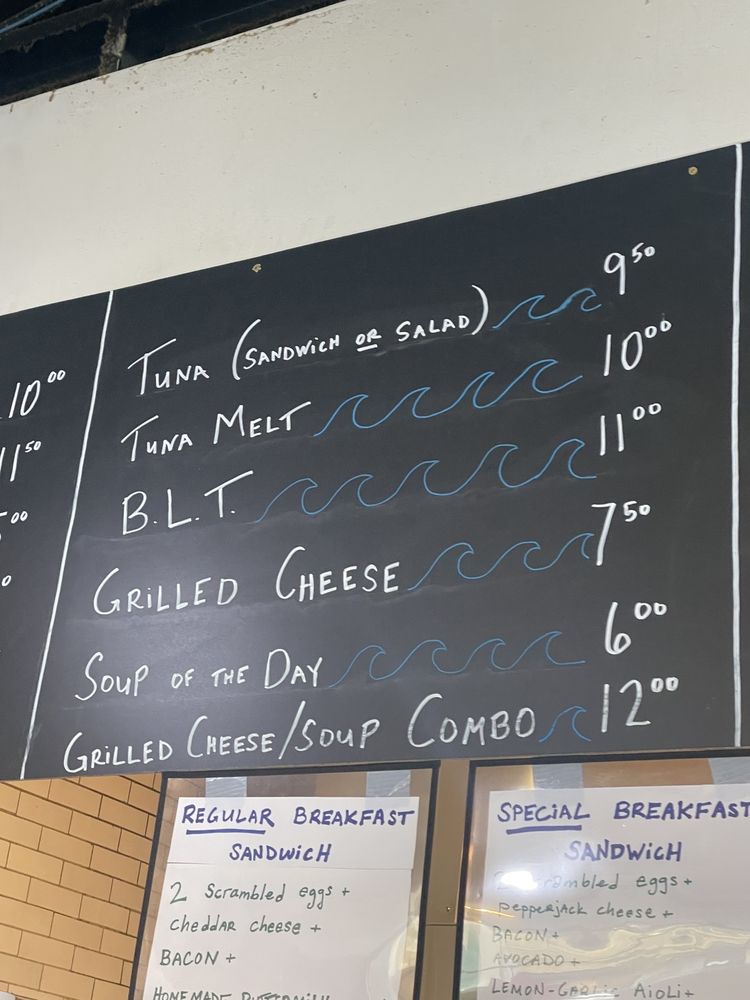 10⁰⁰
11⁵⁰
TUNA (SANDWICH OR SALAD) 9⁵⁰
TUNA MELT 10⁰⁰
B.L.T. 11⁰⁰
GRiLLED CHEESE 7⁵⁰
SOUP OF THE DAY 6⁰⁰
GRiLLED CHEESE/SOUP COMBO 12⁰⁰
REGULAR BREAKFAST
SANDWiCH
2 Scrambled eggs +
CheddAR cheese +
BACON +
HOMEMADE BUTTERMILK
SPECiAL BREAKFAST
SANDWiCH
2 Scrambled eggs +
PepperJack cheese +
BACON +
AVOCADO +
LEMON-GARLIC AiOLi+